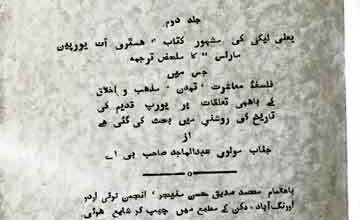 جلد دوم
یعنی لیکی کی مشہور کتاب " ہسٹری آف یورپین
مارلس " کا ملخص ترجمہ
جس میں
فلسفۂ معاشرت ' تمدن ' مذہب و اخلاق
کے باہمی تعلقات پر یورپ قدیم کی
تاریخ کی روشنی میں بحث کی گئی ہے
از
جناب مولوی عبدالماجد صاحب بی اے
باہتمام محمد صدیق حسن منیجر انجمن ترقی اردو
اورنگ آباد، دکن کے مطبع میں چھپ کر شایع ہوئی